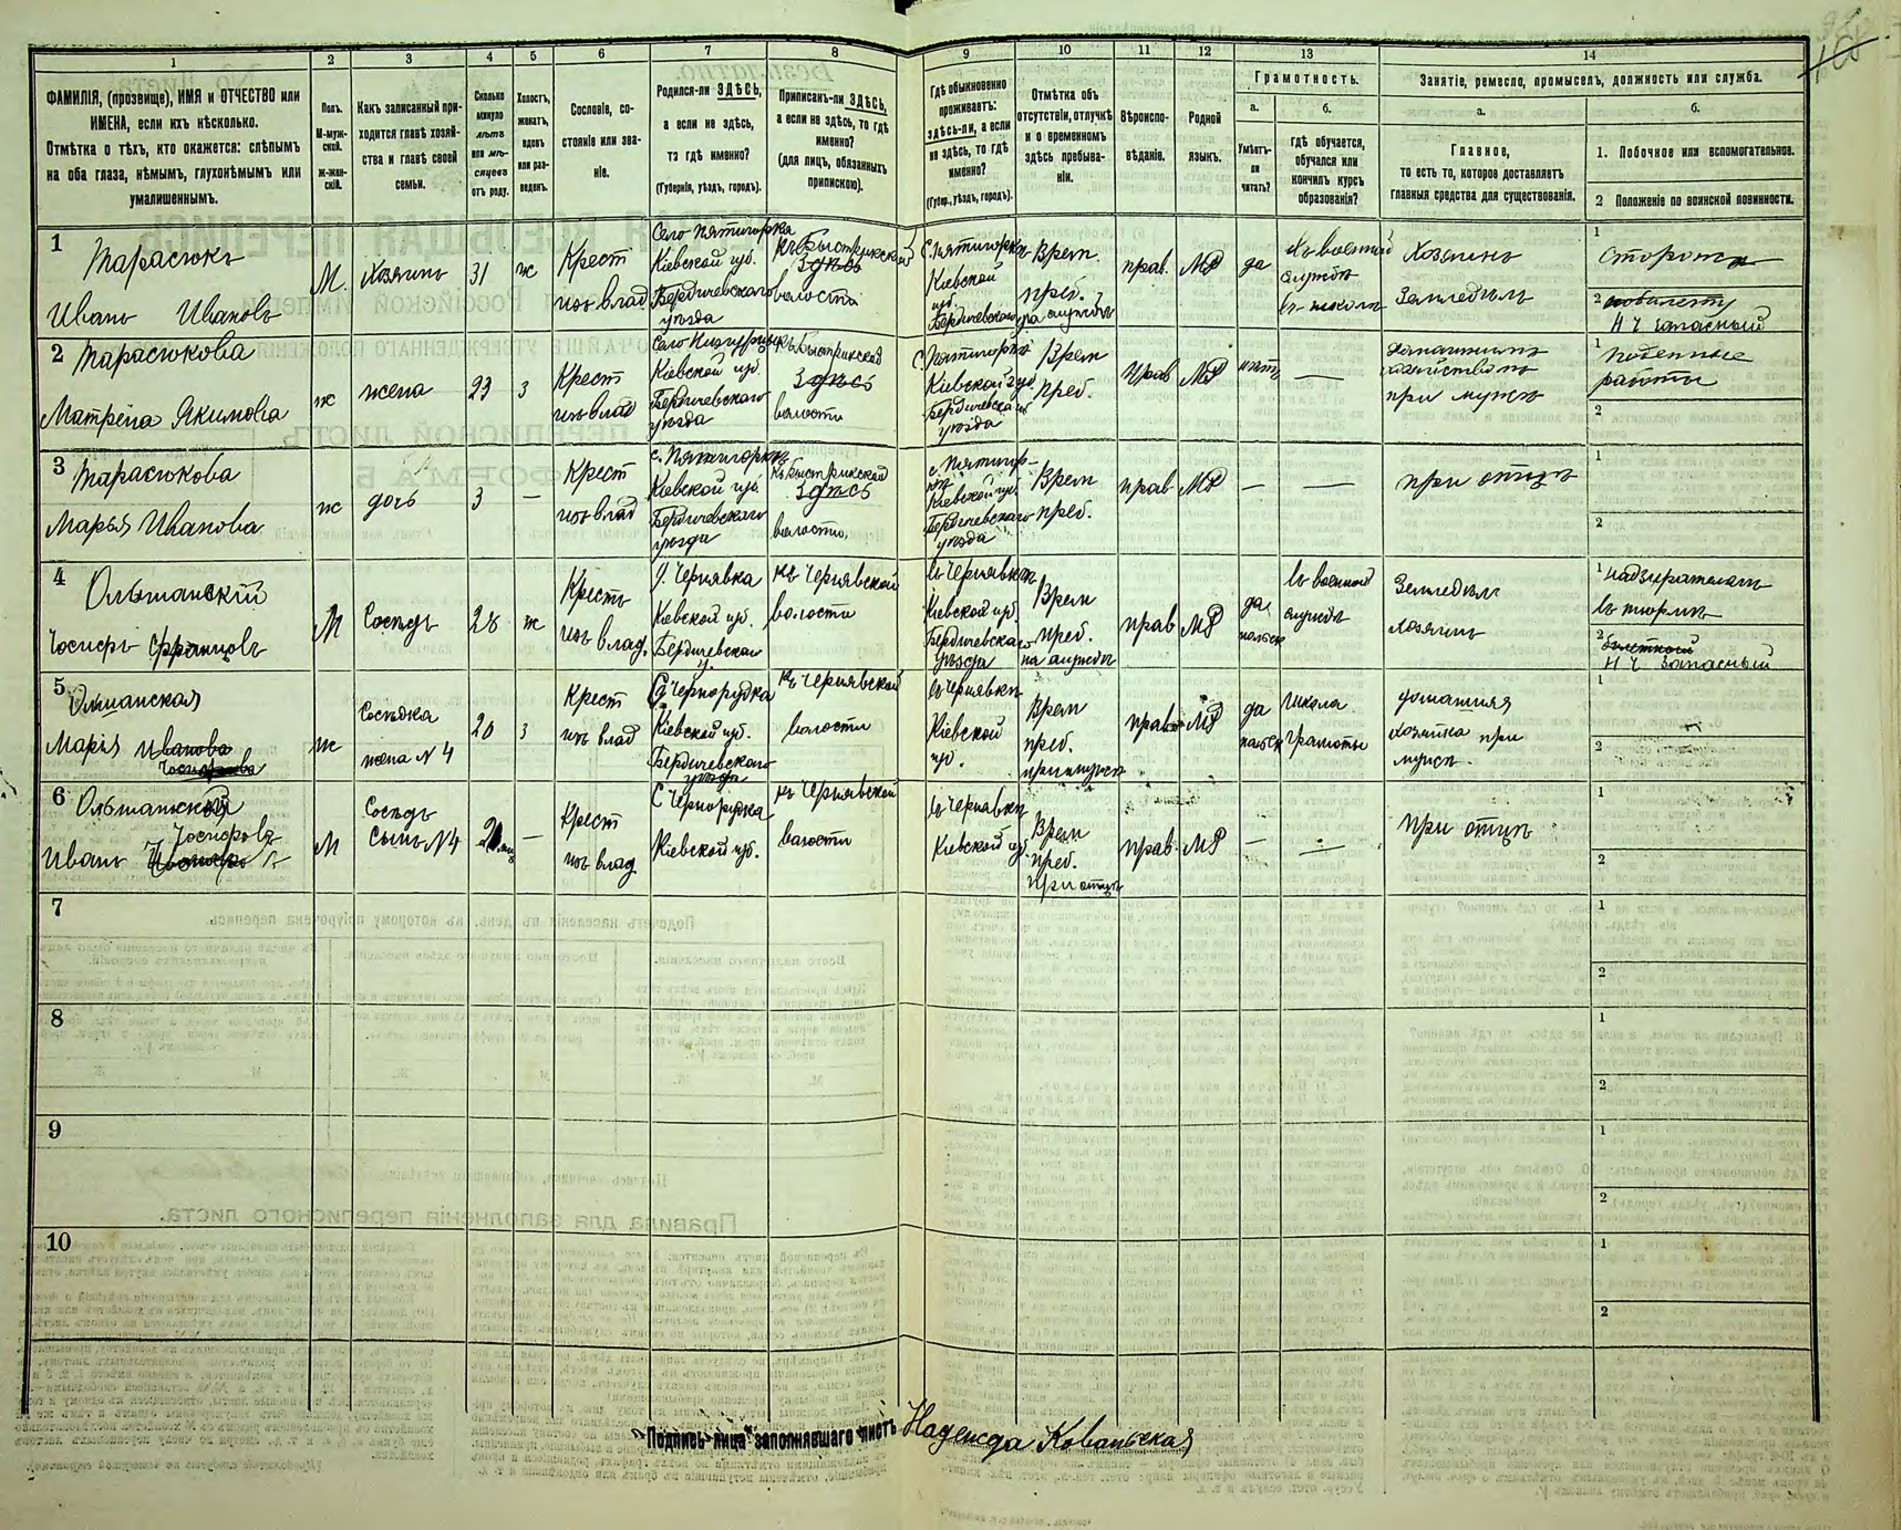 1
2
3
4
5
6
7
8
9
10
11
12
13
14
ФАМИЛІЯ, (прозвище), ИМЯ и ОТЧЕСТВО или
ИМЕНА, если ихъ нѣсколько.
Отмѣтка о тѣхъ, кто окажется: слѣпымъ
на оба глаза, нѣмымъ, глухонѣмымъ или
умалишеннымъ.
Полъ.
М-муж-
ской.
Ж-жен-
скій.
Какъ записанный при-
ходится главѣ хозяй-
ства и главѣ своей
семьи.
Сколько
минуло
лѣтъ
или мѣ-
сяцевъ
отъ роду.
Холостъ,
женатъ,
вдовъ
или раз-
веденъ.
Сословіе, со-
стояніе или зва-
ніе.
Родился-ли ЗДѢСЬ,
а если не здѣсь,
то гдѣ именно?
(Губернія, уѣздъ, городъ).
Приписанъ-ли ЗДѢСЬ,
а если не здѣсь, то гдѣ
именно?
(для лицъ, обязанныхъ
припискою).
Гдѣ обыкновенно
проживаетъ:
здѣсь-ли, а если
не здѣсь, то гдѣ
именно?
(Губер., уѣздъ, городъ).
Отмѣтка объ
отсутствіи, отлучкѣ
и о временномъ
здѣсь пребыва-
ніи.
Вѣроиспо-
вѣданіе.
Родной
языкъ.
Грамотность.
а.
Умѣетъ-
ли
читать?
б.
Гдѣ обучается,
обучался или
кончилъ курсъ
образованія?
Занятіе, ремесло, промыселъ, должность или служба.
а.
Главное,
то есть то, которое доставляетъ
главныя средства для существованія.
б.
1. Побочное или вспомогательное.
2 Положеніе по воинской повинности.
1
Тарасюкъ
Иванъ Ивановъ
М.
Хозяинъ
31
ж
Крест
изъ влад
Село Пятигорка
Кіевской губ.
Бердичевскаго
уѣзда
къ Быстрикской
здѣсь
волости
С. Пятигорка
Кіевской
губ.
Бердичевскаго
Врем.
преб.
на службѣ
прав.
МР
да
въ военной
службѣ
въ школѣ
Хозяинъ
Земледѣлъ
1
Сторожъ
2
Н Ч запасный
2
Тарасюкова
Матрёна Якимова
ж
жена
23
з
Крест
изъ влад
Кіевской губ.
Бердичевскаго
уѣзда
къ Быстрикской
здѣсь
волости
С. Пятигорка
Кіевской губ
Бердичевскаго
уѣзда
Врем
преб.
прав
МР
нѣтъ
—
хозяйствомъ
при мужѣ
1
Поденные
работы
2
3
Тарасюкова
Марья Иванова
ж
дочь
3
—
Крест
изъ влад
с. Пятигорка
Кіевской губ.
Бердичевскаго
уѣзда
къ Быстрикской
здѣсь
волости.
с. Пятигор-
ка
Кіевской губ.
Бердичевскаго
уѣзда
Врем
преб.
прав
МР
—
—
при отцѣ
1
2
4
Ольшанскій
Іосифъ Францовъ
М
Сосѣдъ
28
ж
Крестъ
изъ влад.
Чернявка
Кіевской губ.
Бердичевскаго
у.
къ Чернявской
волости
въ Чернявкѣ
Кіевской губ
Бердичевскаго
уѣзда
Врем
преб.
на службѣ
прав
МР
да
польск
въ военной
службѣ
Земледѣлъ
хозяинъ
1
надзиратель
въ тюрмѣ
2
Н Ч Запасный
5
Ольшанская
Марія Иванова
ж
Сосѣдка
жена N 4
20
з
Крест
изъ влад
С Чернорудка
Кіевской губ.
Бердичевскаго
уѣзда
къ Чернявской
волости
въ Чернявкѣ
Кіевской
губ.
Врем
преб.
при мужѣ
прав
МР
да
польск
школа
грамоты
домашняя
хозяйка при
мужѣ.
1
2
6
Ольшанскій
Іосифовъ
Иванъ
М
Сосѣдъ
Сынъ N 4
—
Крест
изъ влад
С Чернорудка
Кіевской губ.
къ Чернявской
волости
въ Чернявкѣ
Кіевской губ
Врем
преб.
при отцѣ
прав.
МР
—
—
при отцѣ
1
2
7
1
2
8
1
2
9
1
2
10
1
2
Подпись лица заполнявшаго листъ Надежда Ковальская